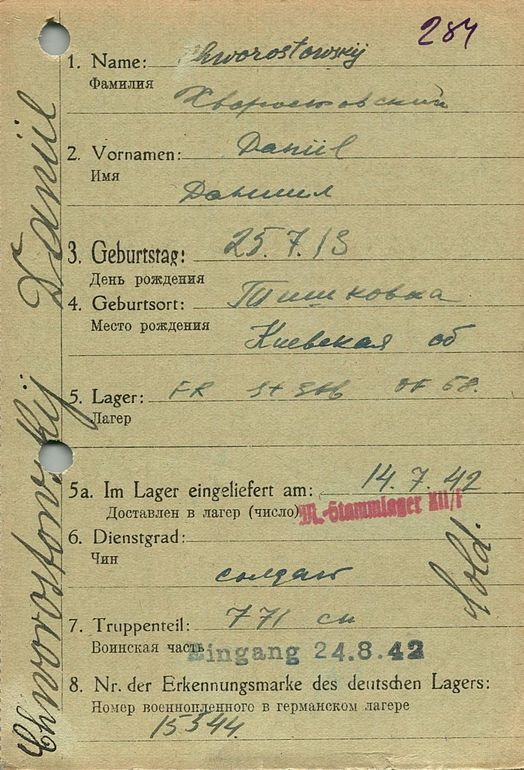 284
1. Name: Chworostowskij
Фамилия
Хворостовский
2. Vornamen: Daniil
Имя
Даниил
3. Geburtstag: 25.7.13
День рождения
4. Geburtsort: Тишковка
Место рождения
Киевская об
5. Lager: FR
Лагер
5a. Im Lager eingeliefert am: 14.7.42
Доставлен в лагер (число)
M.-Stammlager XII/F
6. Dienstgrad:
Чин
солдат
Sold.
7. Truppenteil: 771 сп
Воинская часть
Eingang 24.8.42
8. Nr. der Erkennungsmarke des deutschen Lagers:
Номер военнопленного в германском лагере
15544.
Chworostowskij Daniil